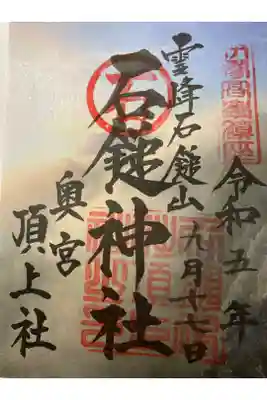 令和五年
九月十七日
霊峰石鎚山
石鎚神社
奥宮
頂上社